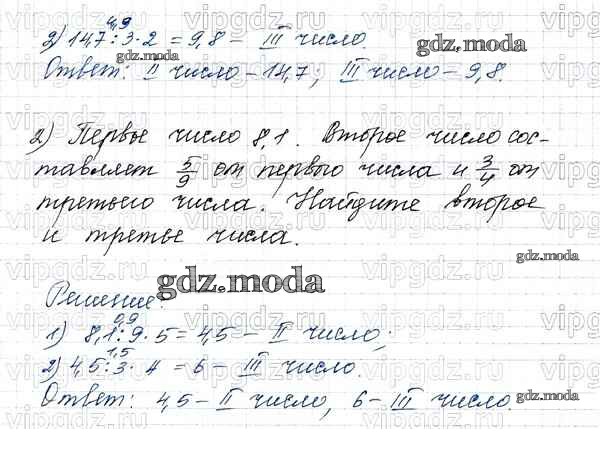 4,9
2) 14,7:3·2 = 9,8 – III число.
Ответ: II число – 14,7; III число – 9,8.
2) Первое число 8,1. Второе число сос-
тавляет 5/9 от первого числа и 3/4 от
третьего числа. Найдите второе
и третье числа.
Решение:
0,9
1) 8,1:9·5 = 4,5 – II число;
1,5
2) 4,5:3·4 = 6 – III число.
Ответ: 4,5 – II число, 6 – III число.
gdz.moda
gdz.moda
gdz.moda
gdz.moda
gdz.moda
gdz.moda
vipgdz.ru